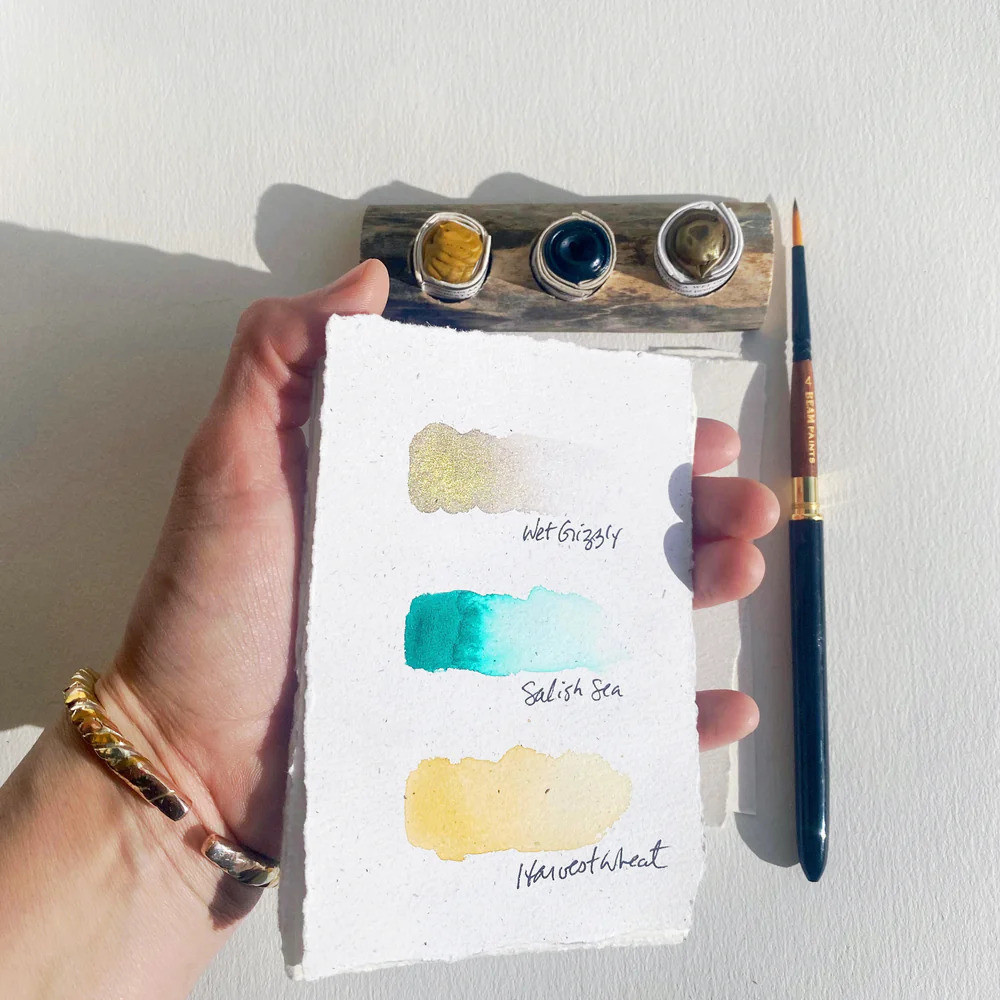 Wet Grizzly
Salish Sea
Harvest Wheat
4 BEAM PAINTS